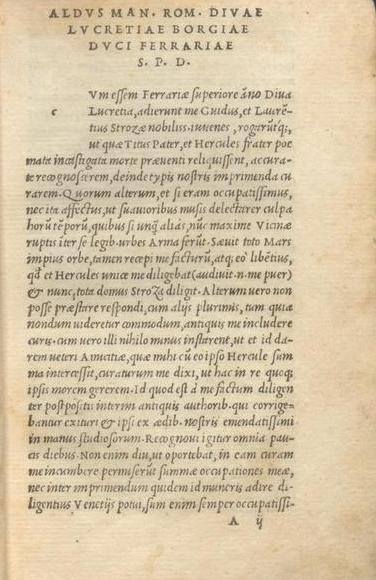 ALDVS MAN. ROM. DIVAE
LVCRETIAE BORGIAE
DVCI FERRARIAE
S. P. D.
c
Vm essem Ferrariæ superiore ãno Diua
Lucretia, adierunt me Guidus, et Laurẽ-
tius Strozæ nobiliss. iuuenes, rogarũtq;,
ut quæ Titus Pater, et Hercules frater poe
mata incastigata morte præuenti reliquissent, accura-
te recognoscerem, deinde typis nostris imprimenda cu
rarem. Quorum alterum, et si eram occupatissimus,
nec ita affectus, ut suauioribus musis delectarer culpa
horũ tẽporũ, quibus si unq̃ aliàs, nũc maxime Vicinæ
ruptis iter se legib. urbes Arma ferũt. Sæuit toto Mars
impius orbe, tamen recepi me facturũ, atq; eo libẽtius,
qđ et Hercules unice me diligebat (audiuit.n.me puer)
& nunc, tota domus Stroza diligit. Alterum uero non
posse præstare respondi, cum alijs plurimis, tum quia
nondum uideretur commodum, antiquis me includere
curis. cum uero illi nihilo minus instarent, ut et id da-
rem ueteri Amicitiæ, quæ mihi cũ eo ipso Hercule sum
ma intercessit, curaturum me dixi, ut hac in re quoq;
ipsis morem gererem. Id quod est à me factum diligen
ter postpositis interim antiquis authorib. qui corrige-
bantur exituri & ipsi ex ædib. nostris emendatissimi
in manus studiosorum. Recognoui igitur omnia pau-
cis diebus. Non enim diu, ut oportebat, in eam curam
me incumbere permiserũt summæ occupationes meæ,
nec inter imprimendum quidem id muneris adire di-
ligentius Venetijs potui, sum enim semper occupatissi-
A ij